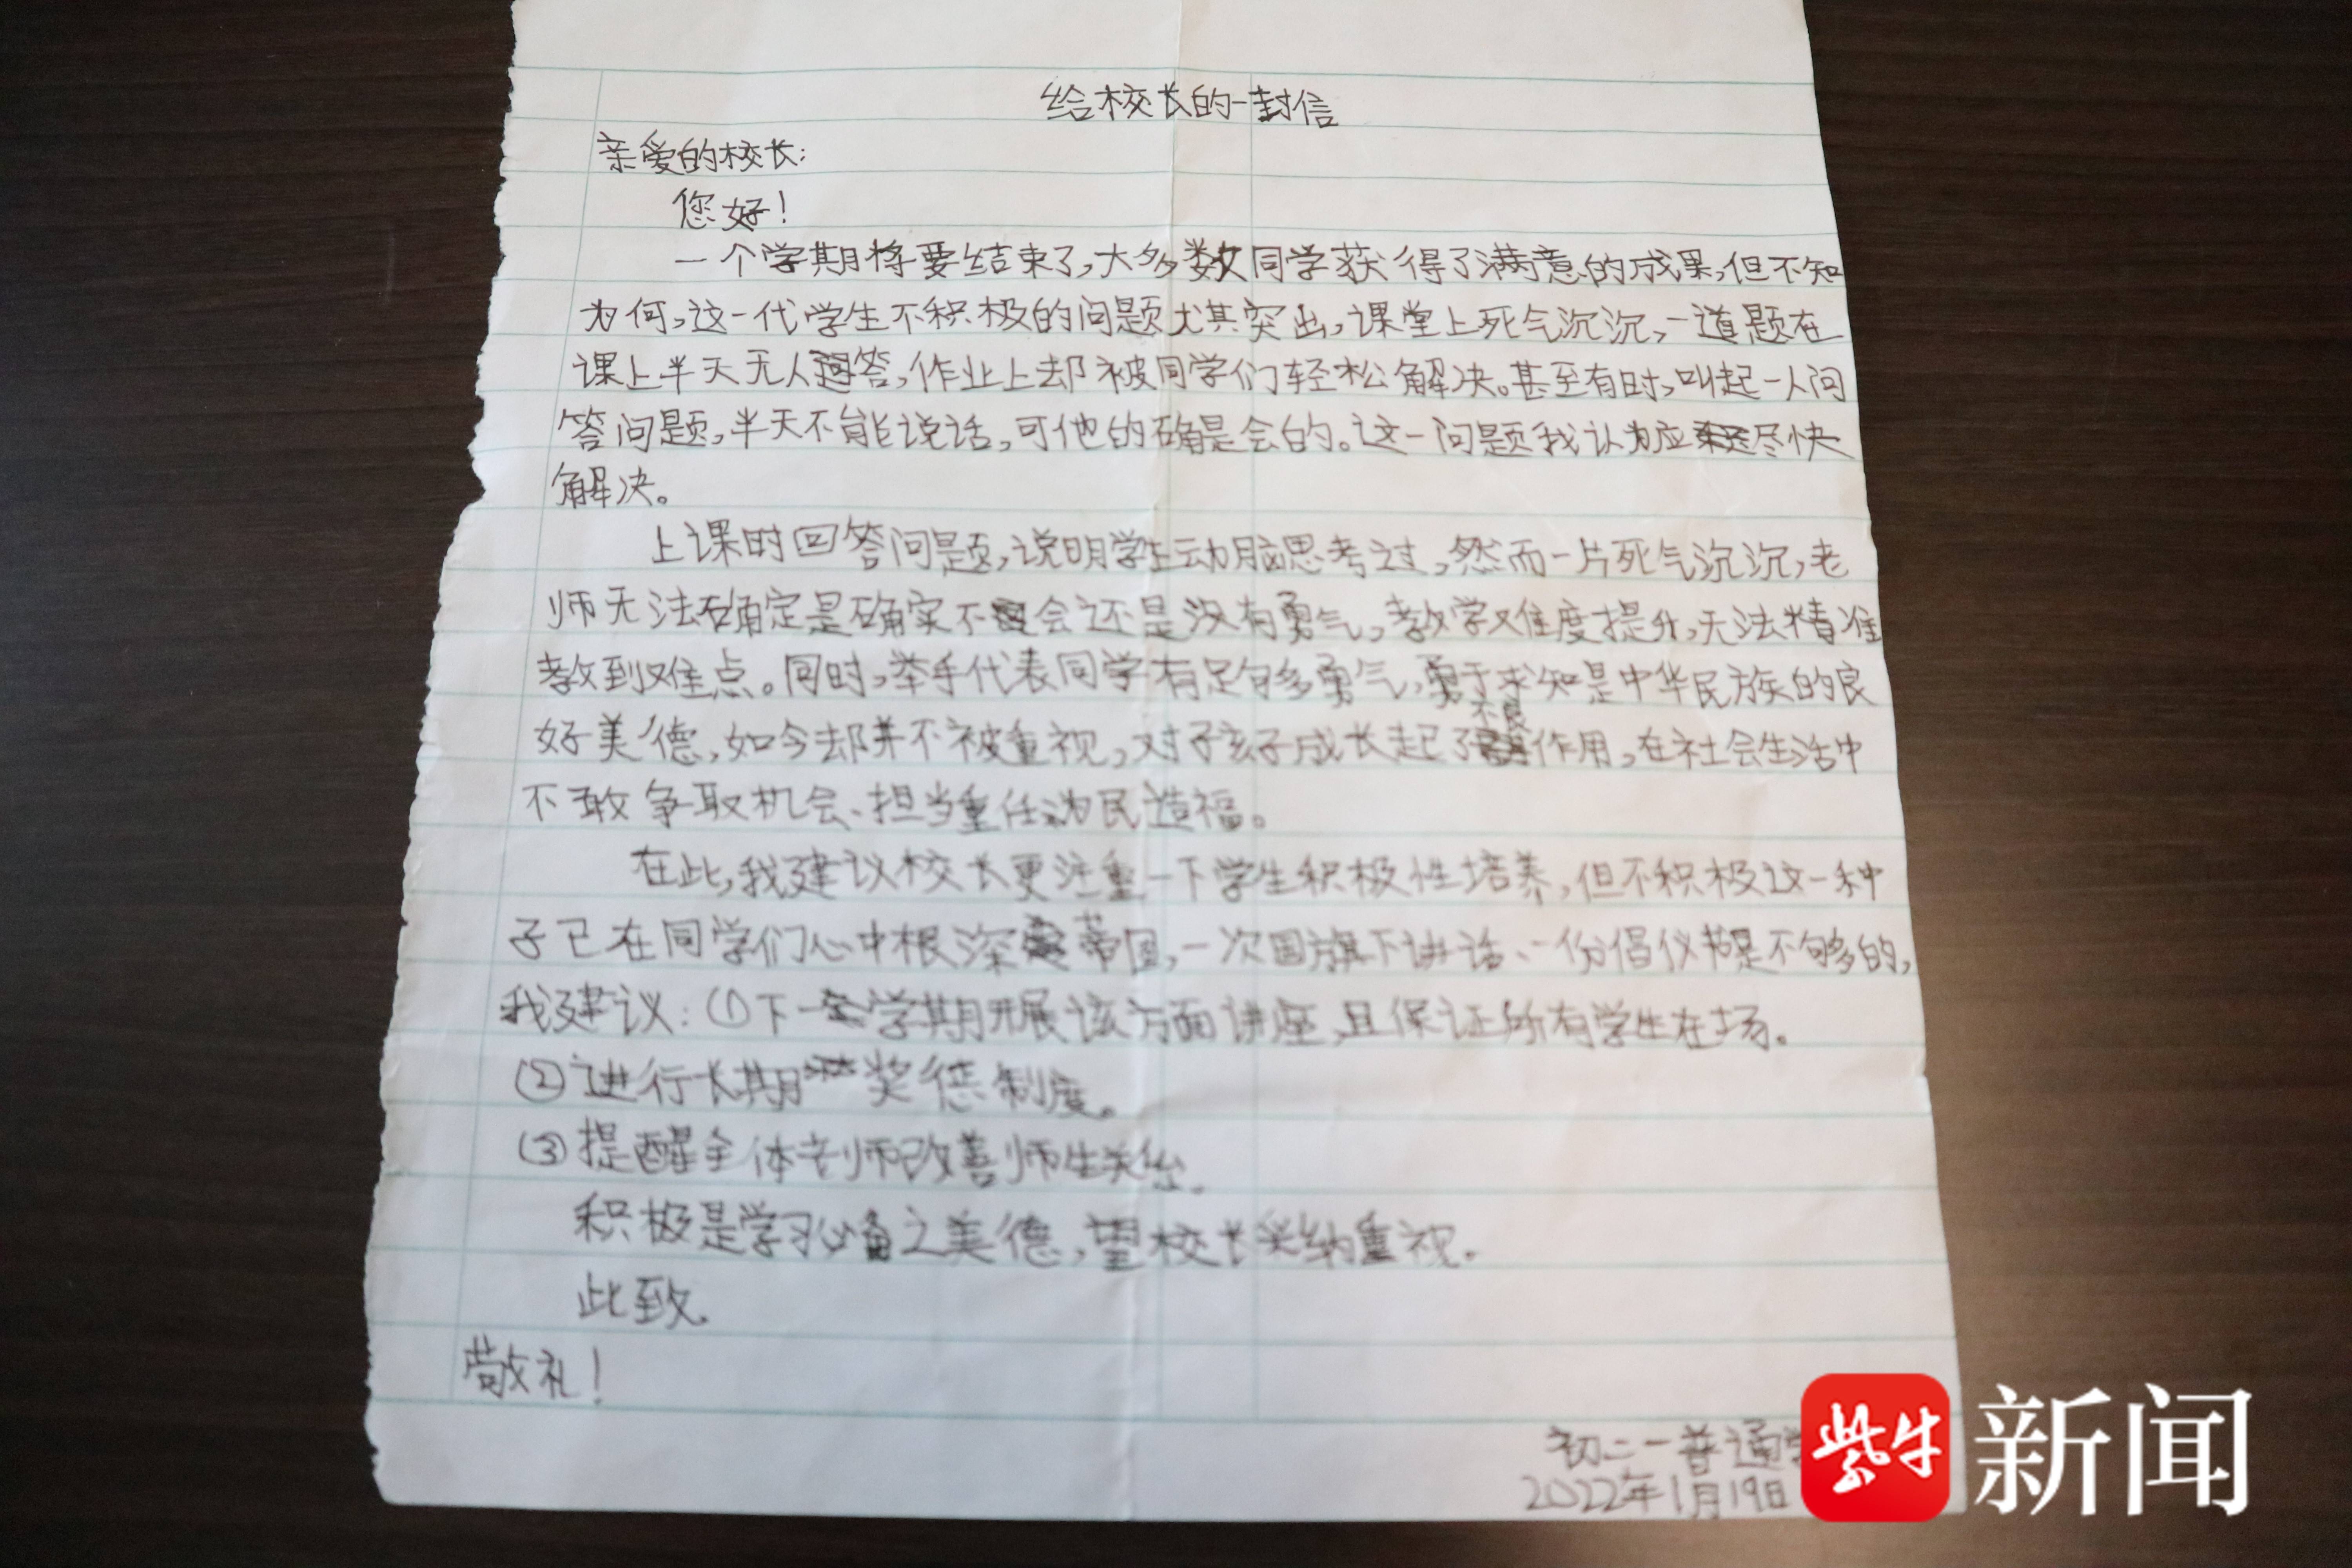 给校长的一封信
亲爱的校长:
您好!
一个学期将要结束了,大多数同学获得了满意的成果,但不知
为何,这一代学生不积极的问题尤其突出,课堂上死气沉沉,一道题在
课上半天无人回答,作业上却被同学们轻松解决。甚至有时,叫起一人问
答问题,半天不能说话,可他的确是会的。这一问题我认为应尽快
解决。
上课时回答问题,说明学生动脑思考过,然而一片死气沉沉,老
师无法确定是确实不会还是没有勇气,教学难度提升,无法精准
教到难点。同时,举手代表同学有足够多勇气,勇于求知是中华民族的良
好美德,如今却并不被重视,对孩子成长起了不良作用,在社会生活中
不敢争取机会、担当重任为民造福。
在此,我建议校长更注重一下学生积极性培养,但不积极这一种
子已在同学们心中根深蒂固,一次国旗下讲话、一份倡仪书是不够多的,
我建议:(1)下一学期开展该方面讲座,且保证所有学生在场。
(2)进行长期奖惩制度。
(3)提醒全体老师改善师生关系。
积极是学习必备之美德,望校长采纳重视。
此致
敬礼!
初二一普通
2022年1月19日
紫牛新闻